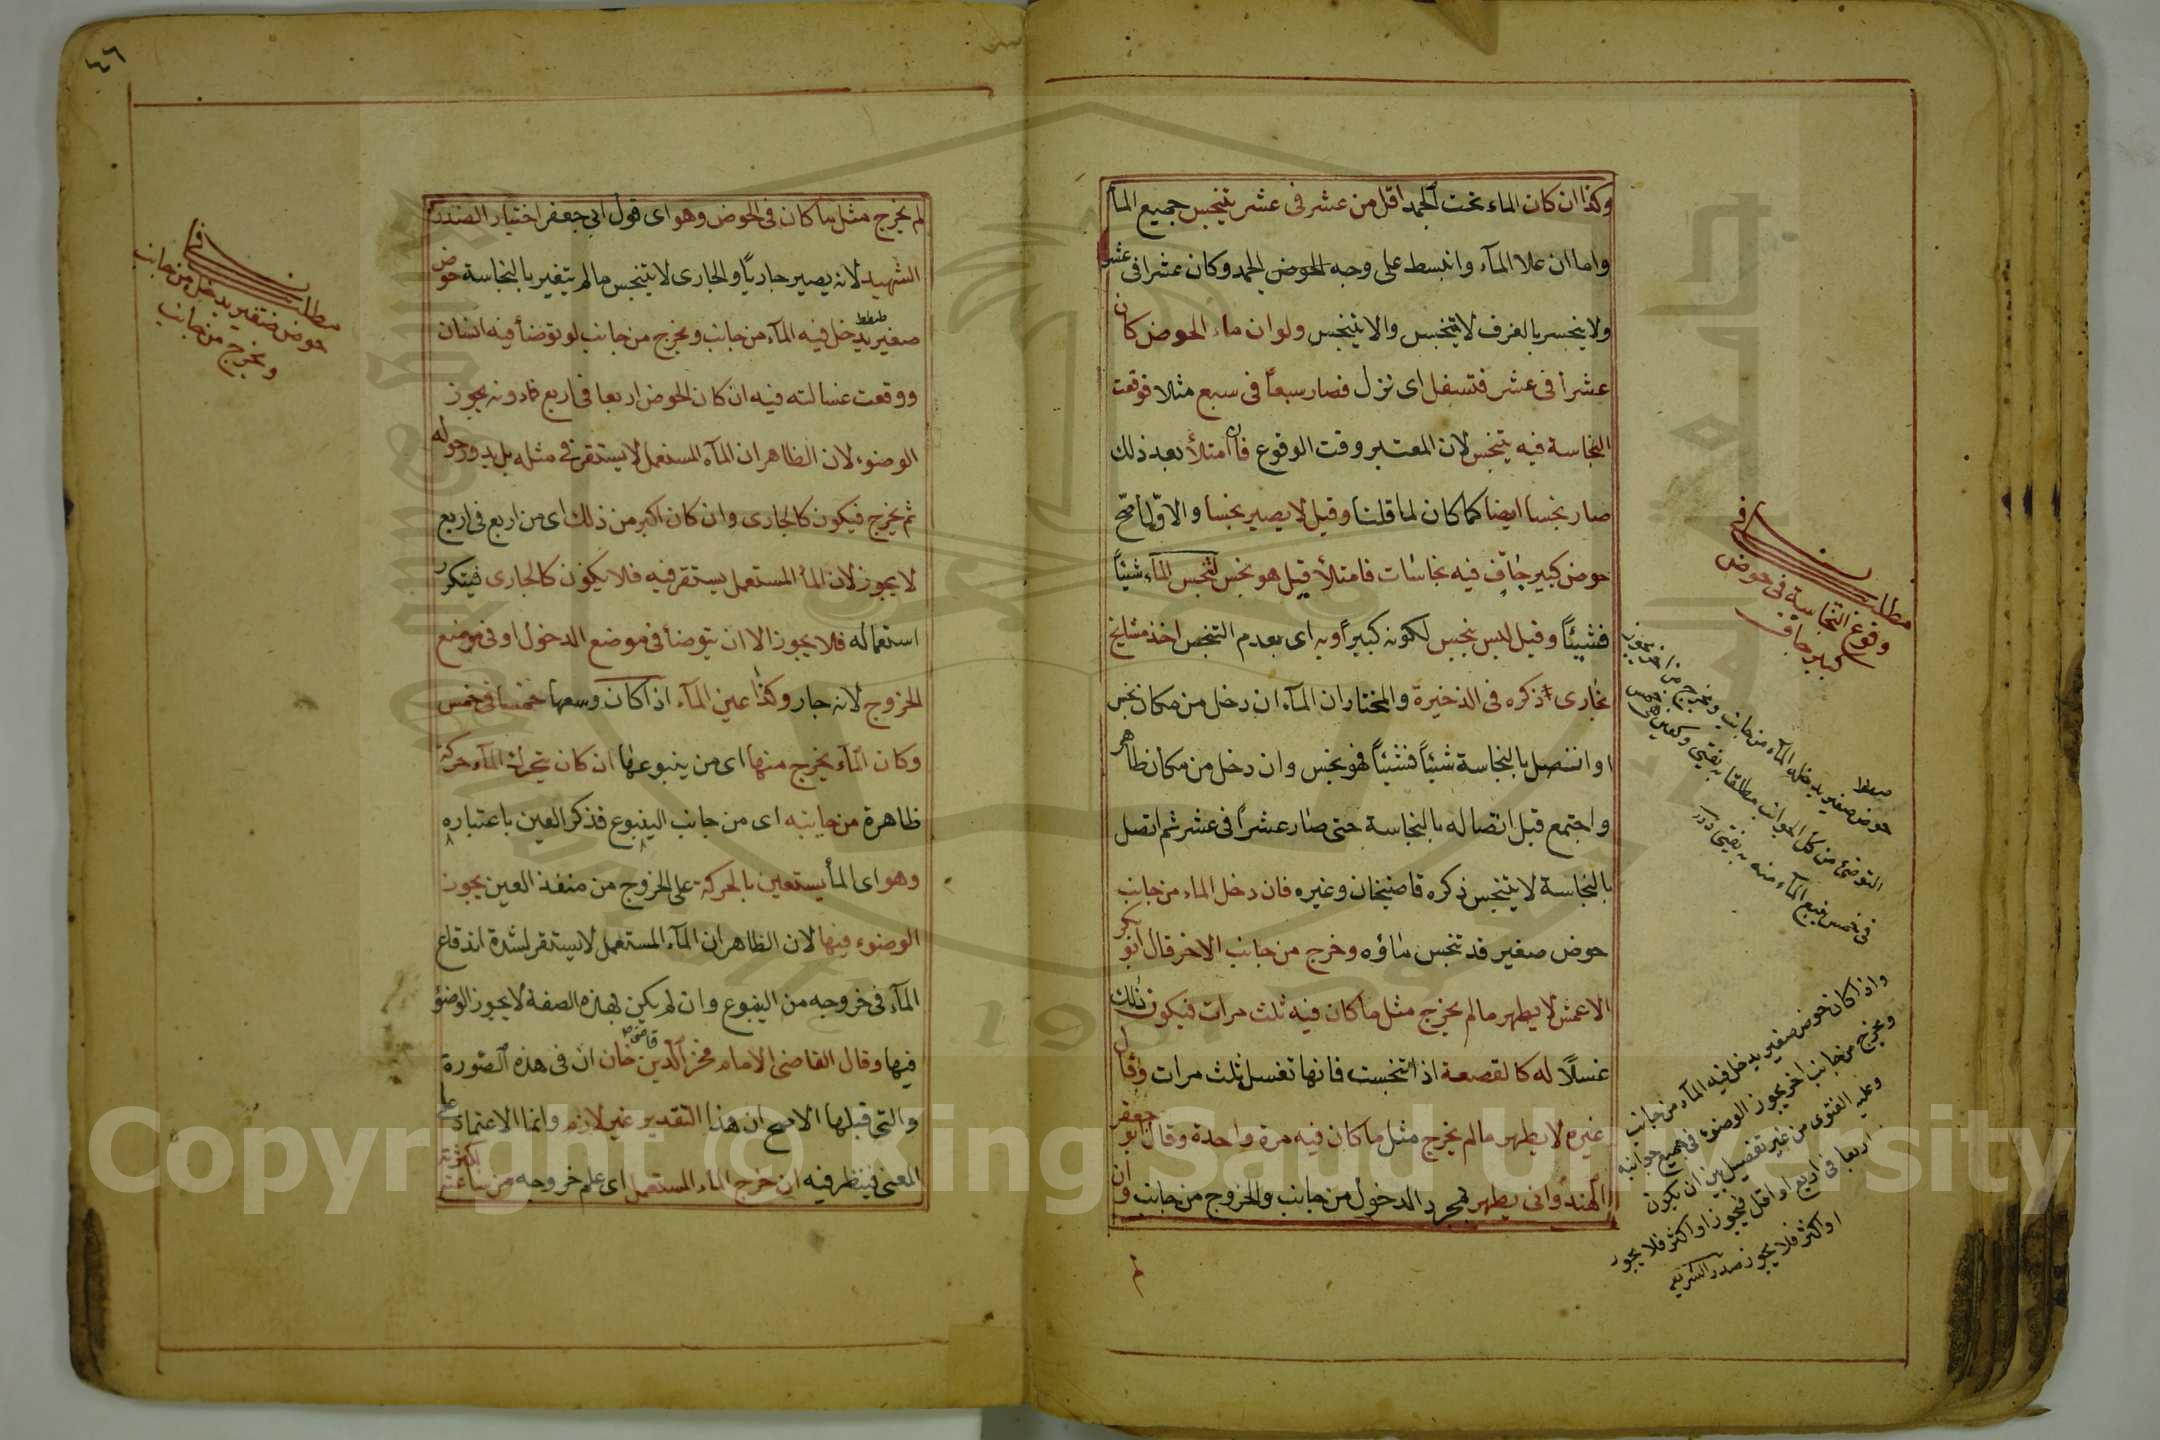 وكذا ان كان الماء تحت الجمد اقل من عشر فى عشر يتنجس جميع المآ
واما ان علا المآء وانبسط على وجه الحوض الجمد وكان عشرا فى عشر
ولا ينحسر بالغرف لا يتنجس والا يتنجس ولو ان ماء الحوض كان
عشرا فى عشر فتسفل اى نزل فصار سبعا فى سبع مثلا فوقعت
النجاسة فيه يتنجس لان المعتبر وقت الوقوع فان امتلأ بعد ذلك
صار نجسا ايضا كما كان لما قلنا وقيل لا يصير نجسا والاول اصح
حوض كبير جاف فيه نجاسات فامتلأ قيل هو نجس لتنجس المآء شيئا
فشيئا وقيل ليس بنجس لكونه كبيرا وبه اى بعدم التنجس اخذ مشايخ
بخارى ذكره فى الذخيرة والمختار ان المآء ان دخل من مكان نجس
او اتصل بالنجاسة شيئا فشيئا فهو نجس وان دخل من مكان طاهر
واجتمع قبل اتصاله بالنجاسة حتى صار عشرا فى عشر ثم اتصل
بالنجاسة لا يتنجس ذكره قاضيخان وغيره فان دخل الماء من جانب
حوض صغير قد تنجس ماؤه وخرج من جانب الاخر قال ابو بكر
الاعمش لا يطهر ما لم يخرج مثل ما كان فيه ثلث مرات فيكون ذلك
غسلا له كالقصعة اذا تنجست فانها تغسل ثلث مرات وقال
غيره لا يطهر ما لم يخرج مثل ما كان فيه مرة واحدة وقال ابو جعفر
الهندوانى يطهر بمجرد الدخول من جانب والخروج من جانب وان
لم
مطلب فى
وقوع النجاسة فى حوض
كبير جاف
حوض صغير يدخله المآء من جانب ويخرج من
التوضئ من كل الجوانب مطلقا به يفتى
فى خمس ينبع المآء منه به يفتى درر
واذا كان حوض صغير يدخل فيه المآء من جانب
ويخرج من جانب اخر يجوز الوضوء فى جميع جوانبه
وعليه الفتوى من غير تفصيل بين ان يكون
اربعا فى اربع او اقل فيجوز او اكثر فلا يجوز
او اكثر فلا يجوز صدر الشريعه
٤٦
لم يخرج مثل ما كان فى الحوض وهو اى قول ابى جعفر اختيار الصدر
الشهيد لانه يصير جاريا والجارى لا يتنجس ما لم يتغير بالنجاسة حوض
صغير يدخل فيه المآء من جانب ويخرج من جانب لو توضأ فيه انسان
ووقعت غسالته فيه ان كان الحوض اربعا فى اربع فما دونه يجوز
الوضوء لان الظاهر ان المآء المستعمل لا يستقر فى مثله بل يدور حوله
ثم يخرج فيكون كالجارى وان كان اكبر من ذلك اى من اربع فى اربع
لا يجوز لان المآ المستعمل يستقر فيه فلا يكون كالجارى فيتكرر
استعماله فلا يجوز الا ان يتوضأ فى موضع الدخول او فى موضع
الخروج لانه جار وكذا عين المآء اذا كان وسعها خمسا فى خمس
وكان المآء يخرج منها اى من ينبوعها ان كان يتحرك المآء حركة
ظاهرة من جانبه اى من جانب الينبوع فذكر العين باعتباره
وهو اى المآ يستعين بالحركة على الخروج من منفذ العين يجوز
الوضوء فيها لان الظاهر ان المآء المستعمل لا يستقر لشدة اندفاع
المآء فى خروجه من الينبوع وان لم يكن بهذه الصفة لا يجوز الوضؤ
فيها وقال القاضى الامام فخر الدين قاضى خان ان فى هذه الصورة
والتى قبلها الاصح ان هذا التقدير غير لازم وانما الاعتماد على
المعنى فينظر فيه ان خرج الماء المستعمل اى علم خروجه من ساعته
مطلب فى
حوض صغير يدخل من جانب
ويخرج من جانب
Copyright © King Saud University
1957